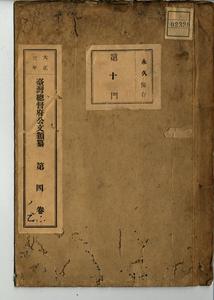 02326
永久保存
第十門
大正
三年
臺灣總督府公文類纂
第四卷
乙